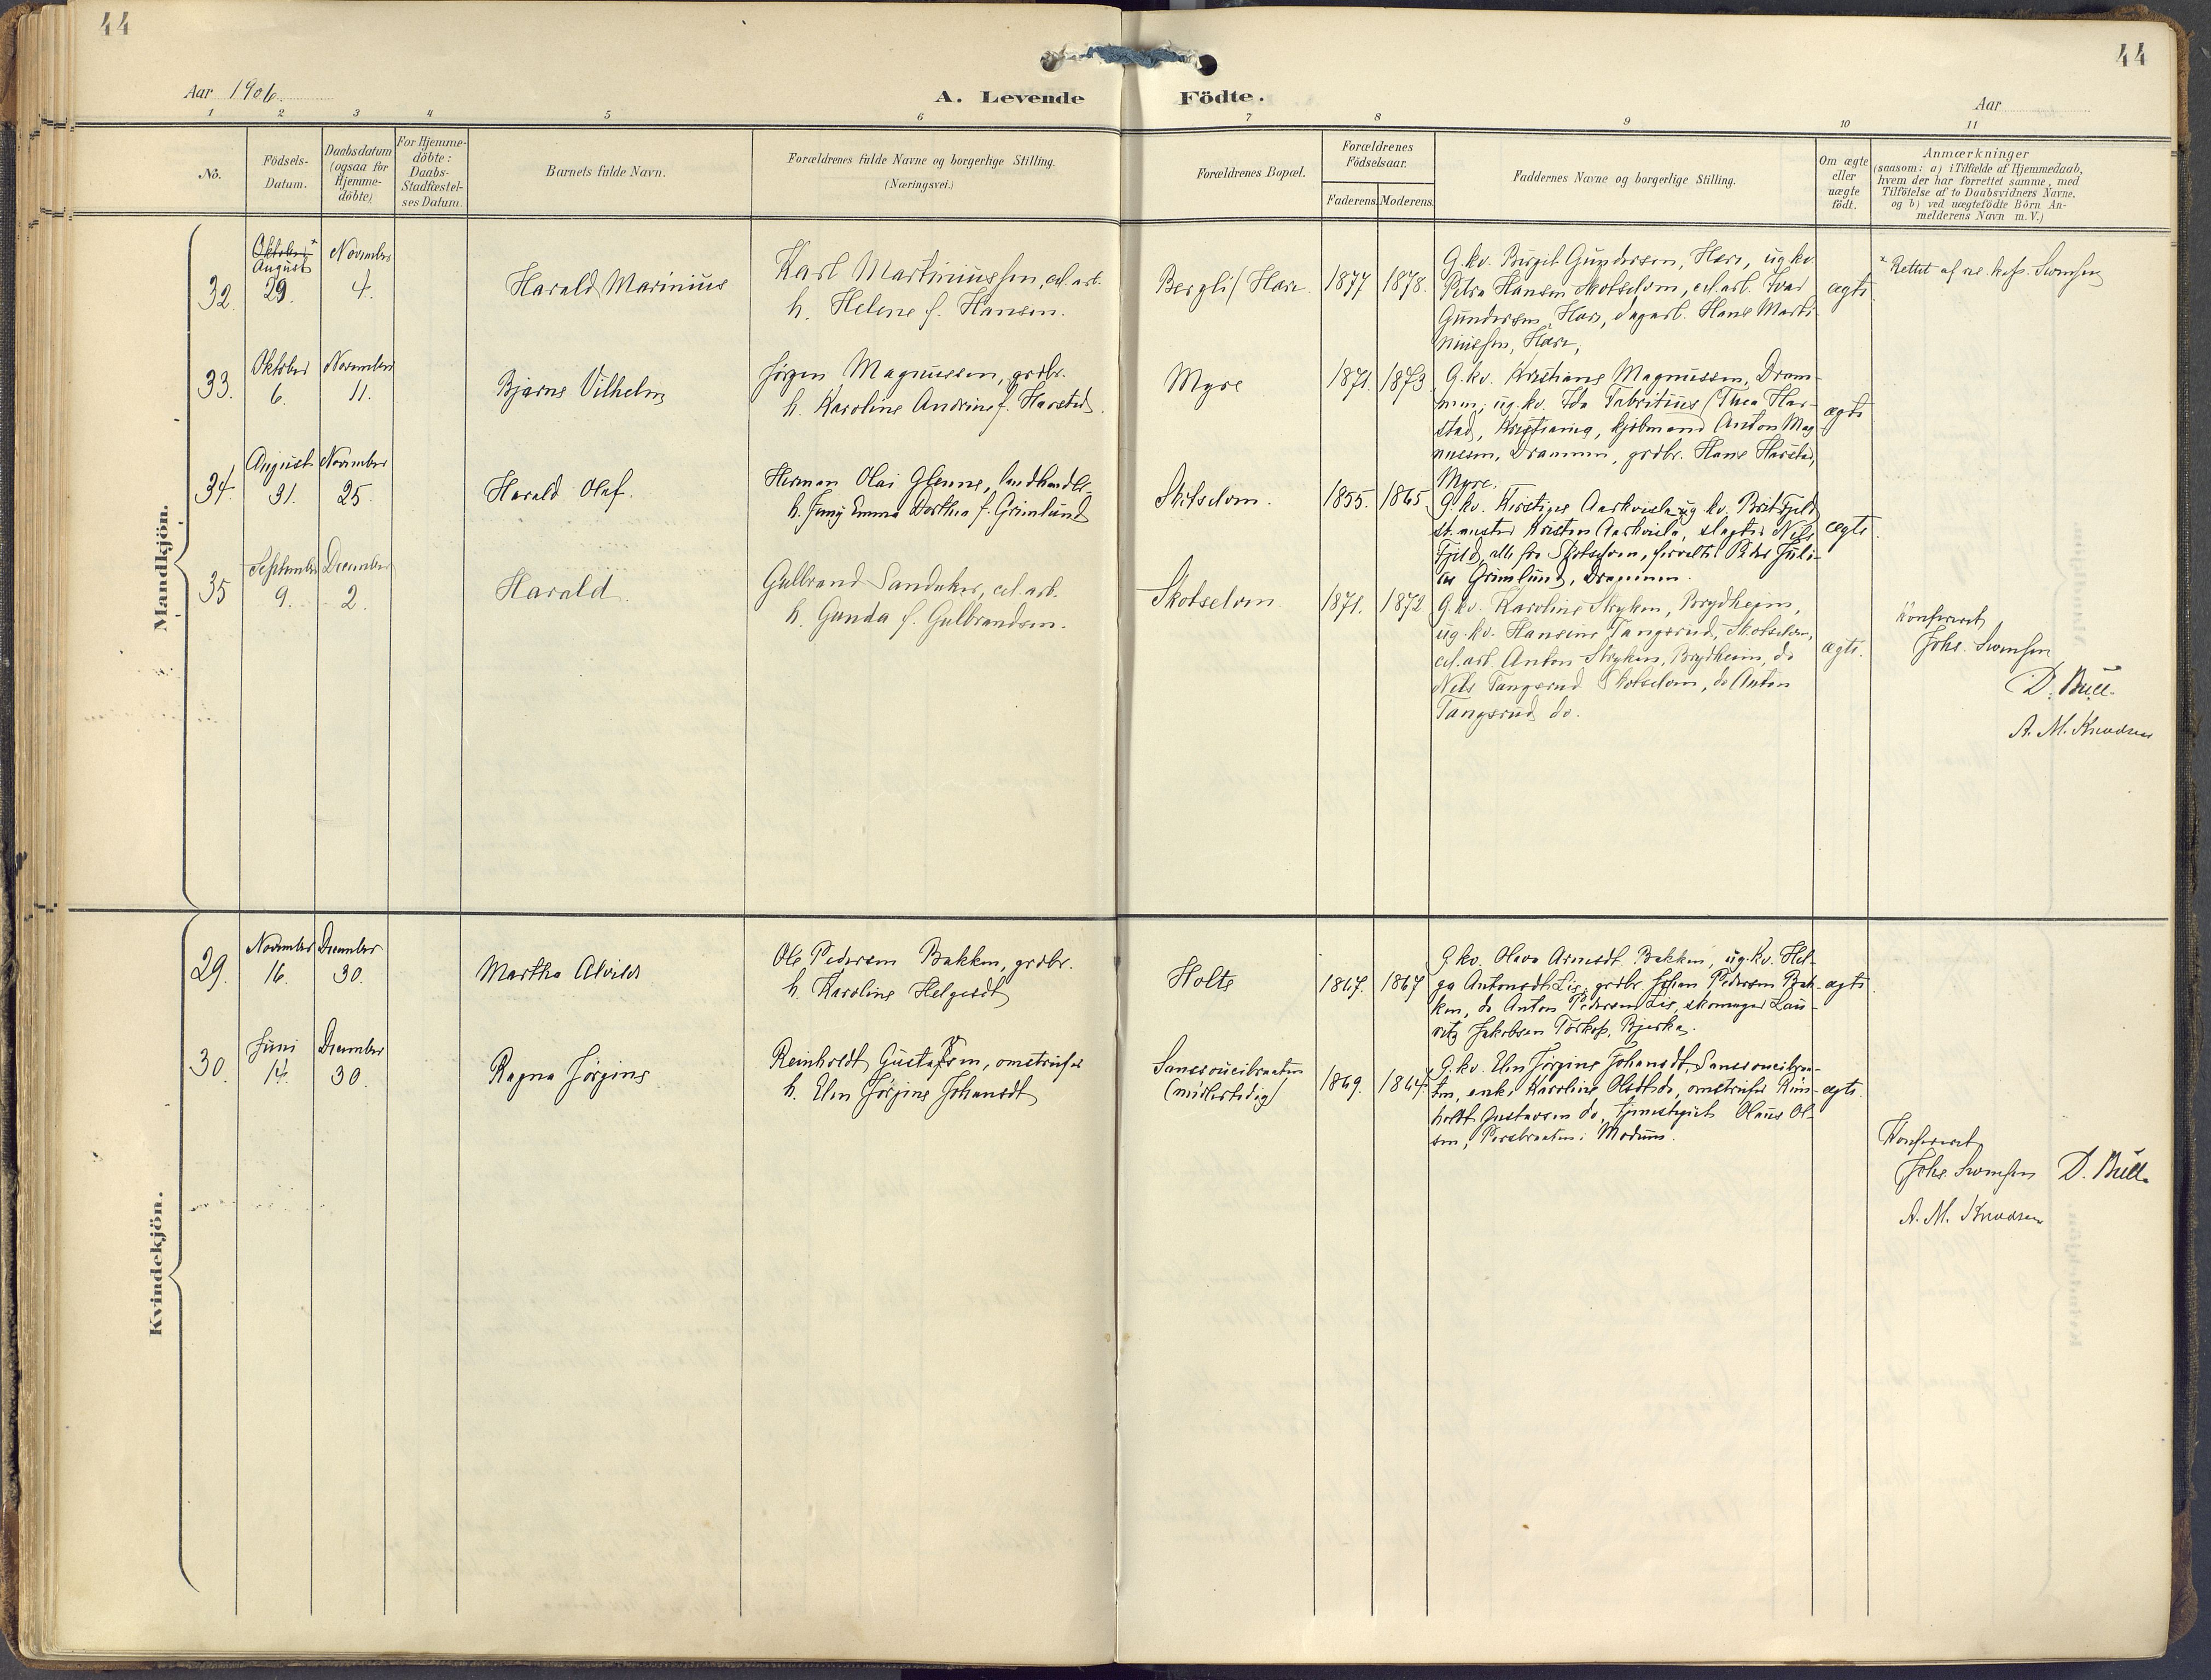 44
44
Aar 1906.
A. Levende Födte.
Aar
1 2 3 4 5 6 7 8 9 10 11
No.
Födsels-
Datum.
Daabsdatum
(ogsaa for
Hjemme-
döbte)
For Hjemme-
döbte:
Daabs-
Stadfæstel-
ses Datum.
Barnets fulde Navn.
Forældrenes fulde Navne og borgerlige Stilling.
(Næringsvei.)
Forældrenes Bopæl.
Forældrenes
Födselsaar.
Faderens. Moderens.
Faddernes Navne og borgerlige Stilling.
Om ægte
eller
uægte
födt.
Anmærkninger
(saasom: a) i Tilfælde af Hjemmedaab,
hvem der har forrettet samme, med
Tilföielse af to Daabsvidners Navne,
og b) ved uægtefödte Börn An-
melderens Navn m.V.)
Mandkjön.
32.
Oktober *
August
29.
November
4.
Harald Marinius
Karl Martiniussen, cel. arb.
h. Helene f. Hansen.
Bergli / Horn
1877
1878.
G. kv. Birgit Gundersen, Horn, ug kv
Petra Hansen Skotselven, cel. arb. Ivar
Gundersen, Horn, dagarb. Hans Marti-
niussen, Horn,
ægte
* Rettet af res. kap. Svensen
33.
Oktober
6.
November
11.
Bjarne Vilhelm
Jörgen Magnussen, grdbr.
h. Karoline Andrine f. Harstad.
Myre
1871.
1873
G. kv. Kristiane Magnussen, Dram-
men, ug. kv. Ida Fabritius (Thea Har-
stad, Kristiania, kjöbmand Anton Mag
nussen, Drammen, grdbr. Hans Harstad,
Myre.
ægte
34.
August
31.
November
25.
Harald Olaf.
Herman Olai Glenne, landhandler
h. Jenny Emma Dorthea f. Grimlund
Skotselven.
1855.
1865
G. kv. Kristine Aarkvisla ug kv. Brit Fjeld
st. mester Kristen Aarkvisla, slagter Nils
Fjeld, alle fra Skotselven, forvalter Peder Juli-
us Grimlund, Drammen.
ægte.
35
September
9.
December
2.
Harald.
Gulbrand Sandaker, cel. arb.
h. Gunda f. Gulbrandsen.
Skotselven
1871.
1872
G. kv. Karoline Stryken, Brydheim,
ug. kv. Hansine Tangerud, Skotselven,
cel. arb. Anton Stryken, Brydheim, do
Nils Tangerud Skotselven, do Anton
Tangerud do.
ægte.
Konfereret
Johs. Svensen
D. Bull.
A. M. Knudsen
Kvindekjön.
29.
November
16.
December
30.
Martha Alvilde
Ole Pedersen Bakken, grdbr.
h. Karoline Helgesdt
Holte
1867.
1867
G. kv. Olava Arnesdt. Bakken, ug. Kv. Hel-
ga Antonsdt. Lie, grdbr. Johan Pedersen Bak-
ken, do Anton Pedersen Lie, skomager Lau-
ritz Jakobsen Torkop, Bjerka.
ægte
30.
Juni
14.
December
30.
Ragna Jörgine
Reinholdt Gustavsen, omstreifer
h. Elen Jörgine Johansdt
Sanssoucibraaten
(midlertidig)
1869.
1864.
G. kv. Elen Jörgine Johansdt, Sanssoucibraa-
ten, enke Karoline Olsdt do, omstreifer Rein-
holdt Gustavsen do, Olaus Ol-
sen, Persbraaten i Modum.
ægte.
Konfereret
Johs. Svensen D. Bull.
A. M. Knudsen